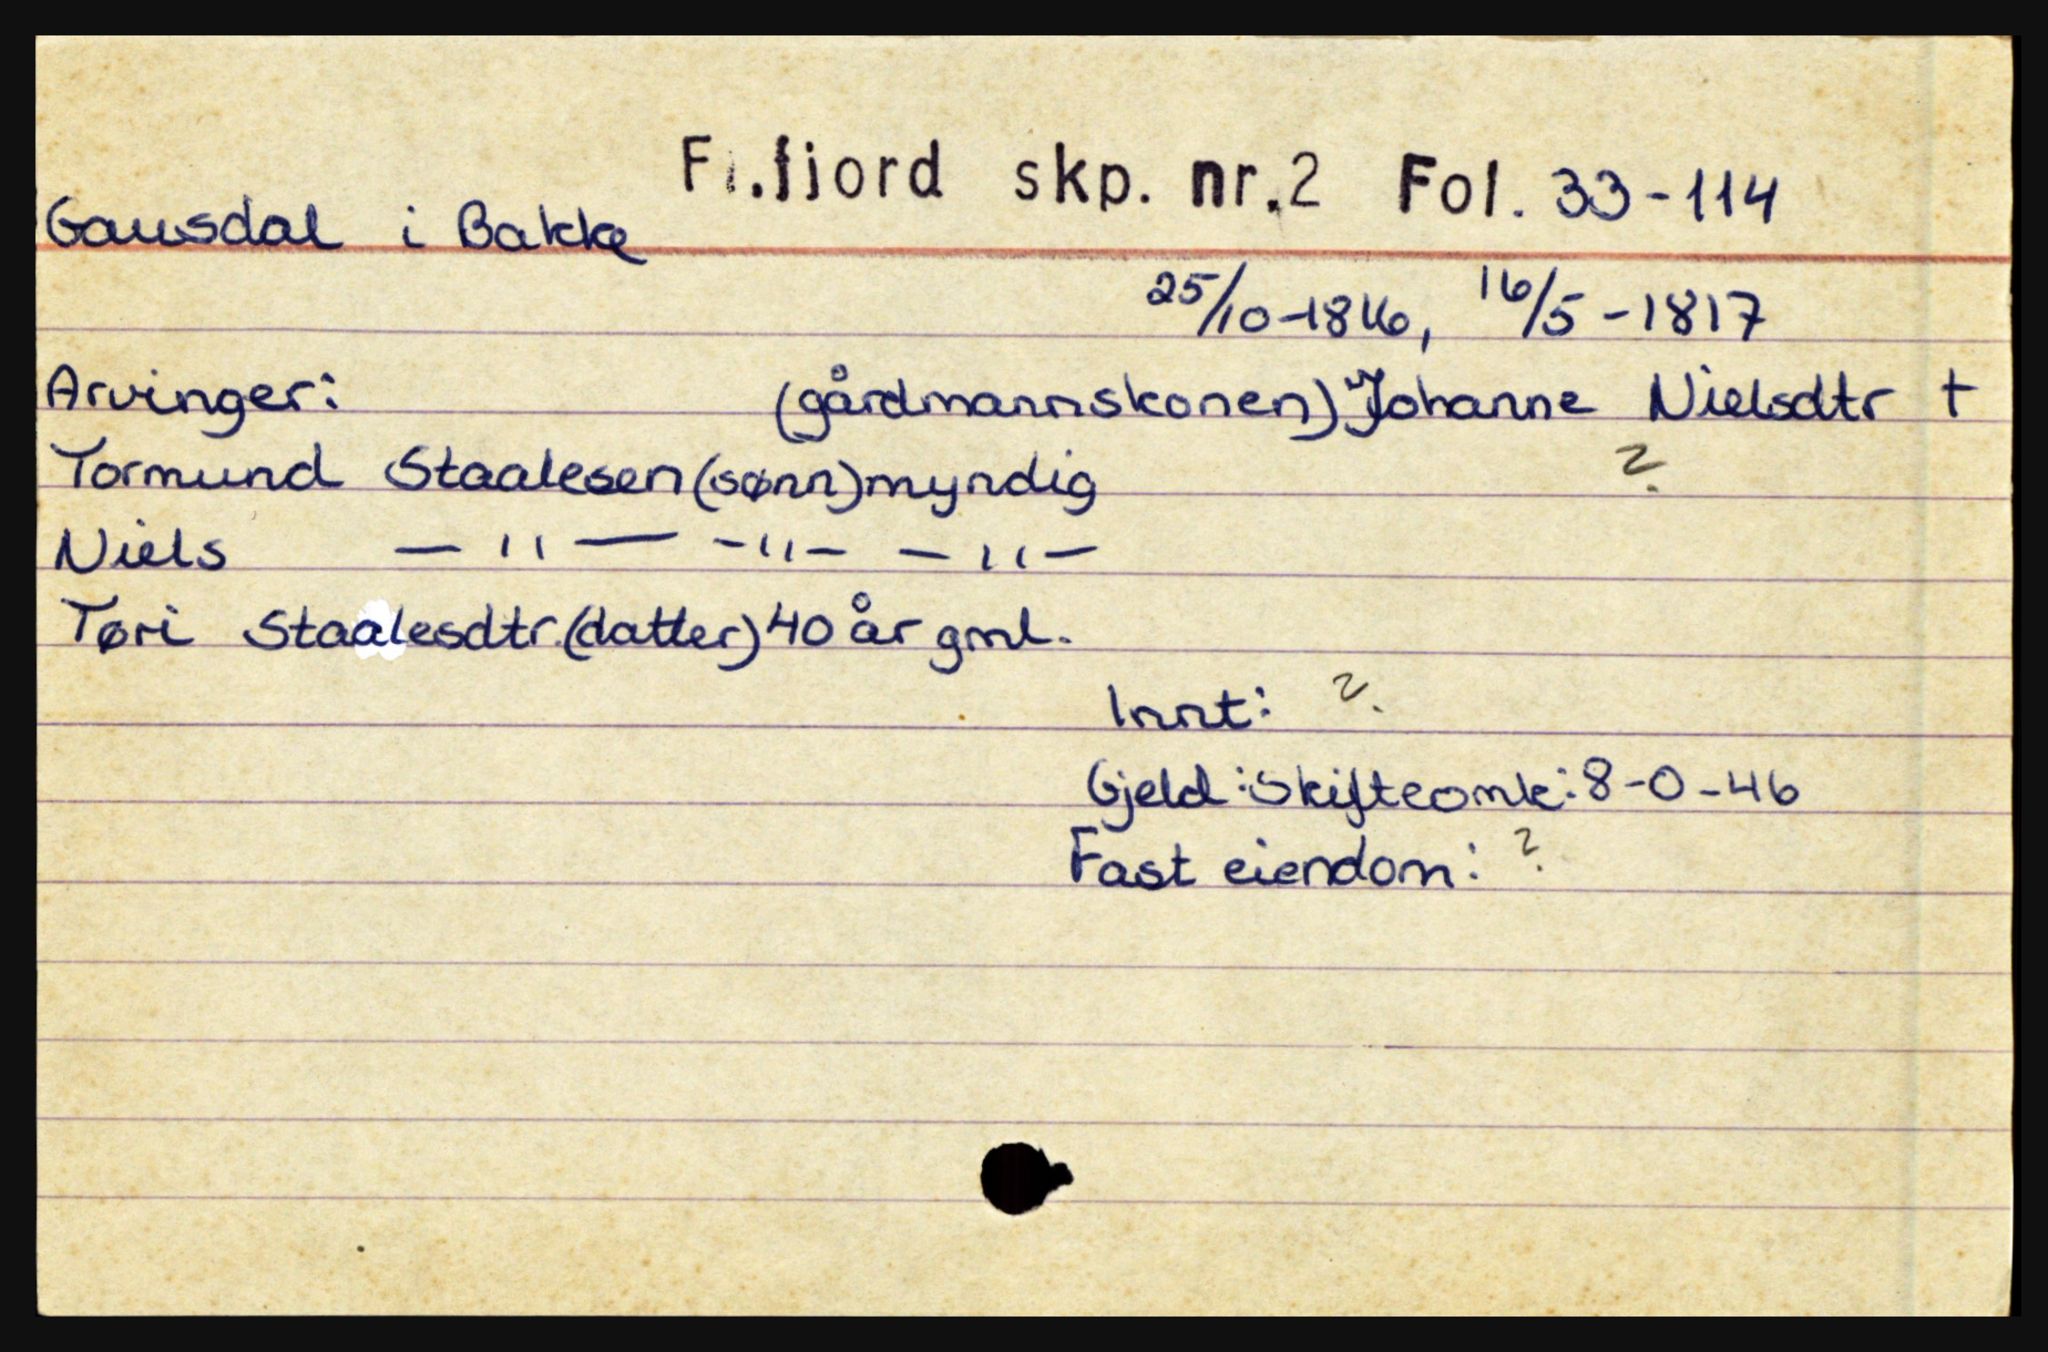 Fl.fjord skp. nr.2 Fol. 33-114
Gausdal i Bakke
25/10-1816, 16/5-1817
Arvinger: (gårdmannskonen) Johanne Nielsdtr †
Tormund Staalesen (sønn) myndig ?
Niels — " — - " - - " -
Tøri Staalesdtr. (datter) 40 år gml.
Innt: ?
Gjeld: Skifteomk: 8-0-46
Fast eiendom: ?